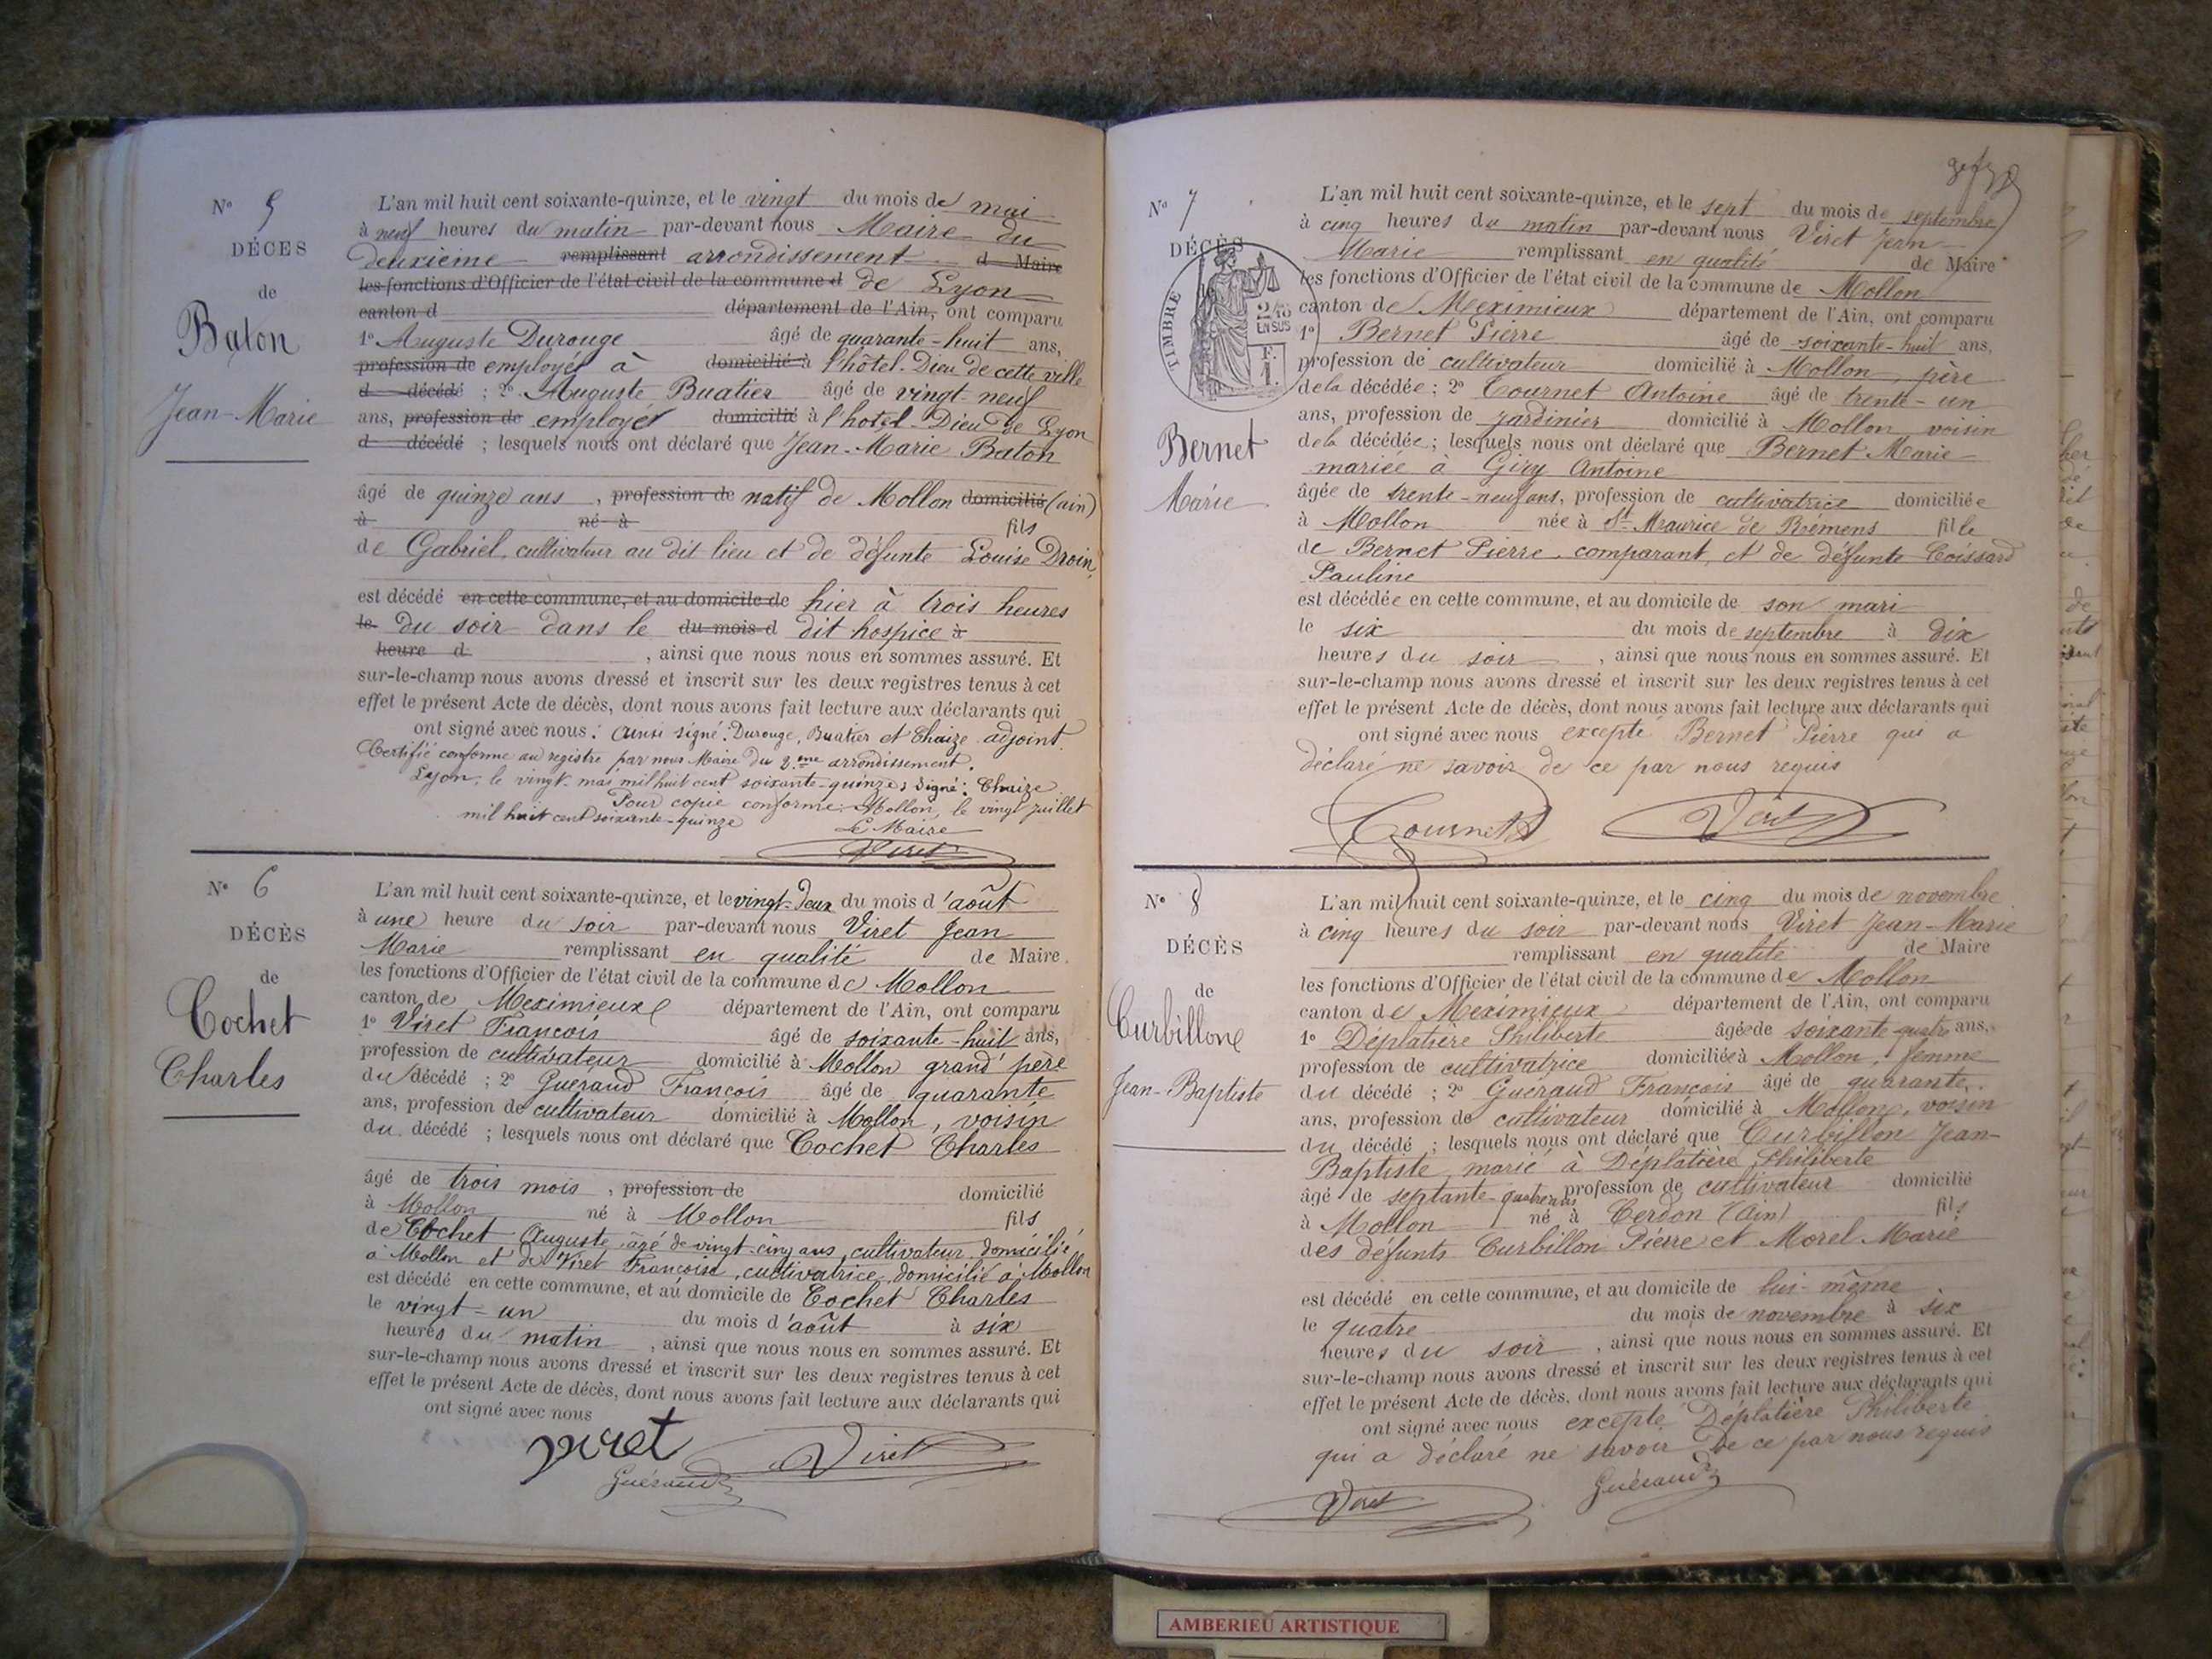 N° 5
DÉCES
de
Baton
Jean-Marie
L'an mil huit cent soixante-quinze, et le vingt du mois de mai
à neuf heures du matin par-devant nous Maire du
deuxième remplissant arrondissement d Maire
les fonctions d'Officier de l'état civil de la commune d de Lyon
canton d département de l'Ain, ont comparu
1° Auguste Durouge âgé de quarante-huit ans,
profession de employés à domicilié à l'hôtel-Dieu de cette ville
d décédé ; 2° Auguste Buatier âgé de vingt-neuf
ans, profession de employés domicilié à l'hotel-Dieu de Lyon
d décédé ; lesquels nous ont déclaré que Jean-Marie Baton
âgé de quinze ans , profession de natif de Mollon domicilié (ain)
à né à fils
de Gabriel, cultivateur au dit lieu et de défunte Louise Droin
est décédé en cette commune, et au domicile de hier à trois heures
le du soir dans le du mois d dit hospice à
heure d , ainsi que nous nous en sommes assuré. Et
sur-le-champ nous avons dressé et inscrit sur les deux registres tenus à cet
effet le présent Acte de décès, dont nous avons fait lecture aux déclarants qui
ont signé avec nous : ainsi signé : Durouge, Buatier et Chaize adjoint.
Certifié conforme au registre par nous Maire du 2.me arrondissement.
Lyon, le vingt mai mil huit cent soixante-quinze ; signé : Chaize
Pour copie conforme : Mollon, le vingt juillet
mil huit cent soixante-quinze
Le Maire
Viret
N° 6
DÉCÈS
de
Cochet
Charles
L'an mil huit cent soixante-quinze, et le vingt-deux du mois d'août
à une heure du soir par-devant nous Viret Jean
Marie remplissant en qualité de Maire.
les fonctions d'Officier de l'état civil de la commune de Mollon
canton de Meximieux département de l'Ain, ont comparu
1° Viret François âgé de soixante-huit ans,
profession de cultivateur domicilié à Mollon grand'père
du décédé ; 2° Gueraud François âgé de quarante
ans, profession de cultivateur domicilié à Mollon, voisin
du décédé ; lesquels nous ont déclaré que Cochet Charles
âgé de trois mois , profession de domicilié
à Mollon né à Mollon fils
de Cochet Auguste âgé de vingt-cinq ans, cultivateur domicilié
à Mollon et de Viret Françoise, cultivatrice, domicilié à Mollon
est décédé en cette commune, et au domicile de Cochet Charles
le vingt-un du mois d'août à six
heures du matin , ainsi que nous nous en sommes assuré. Et
sur-le-champ nous avons dressé et inscrit sur les deux registres tenus à cet
effet le présent Acte de décès, dont nous avons fait lecture aux déclarants qui
ont signé avec nous
viret Viret
Guéraud
N° 7
DÉCÈS
TIMBRE
2/10
EN SUS
F.
1.
Bernet
Marie
L'an mil huit cent soixante-quinze, et le sept du mois de septembre
à cinq heures du matin par-devant nous Viret Jean
Marie remplissant en qualité de Maire
les fonctions d'Officier de l'état civil de la commune de Mollon
canton de Meximieux département de l'Ain, ont comparu
1° Bernet Pierre âgé de soixante-huit ans,
profession de cultivateur domicilié à Mollon, père
de la décédée ; 2° Cournet Antoine âgé de trente-un
ans, profession de jardinier domicilié à Mollon voisin
de la décédée ; lesquels nous ont déclaré que Bernet Marie
mariée à Giry Antoine
âgée de trente-neuf ans, profession de cultivatrice domiciliée
à Mollon née à St Maurice de Rémens fille
de Bernet Pierre comparant, et de défunte Coissard
Pauline
est décédée en cette commune, et au domicile de son mari
le six du mois de septembre à dix
heures du soir , ainsi que nous nous en sommes assuré. Et
sur-le-champ nous avons dressé et inscrit sur les deux registres tenus à cet
effet le présent Acte de décès, dont nous avons fait lecture aux déclarants qui
ont signé avec nous excepté Bernet Pierre qui a
déclaré ne savoir de ce par nous requis
Cournet Viret
N° 8
DÉCÈS
de
Curbillon
Jean-Baptiste
L'an mil huit cent soixante-quinze, et le cinq du mois de novembre
à cinq heures du soir par-devant nous Viret Jean-Marie
remplissant en qualité de Maire
les fonctions d'Officier de l'état civil de la commune de Mollon
canton de Meximieux département de l'Ain, ont comparu
1° Déplatière Philiberte âgée de soixante-quatre ans,
profession de cultivatrice domiciliée à Mollon, femme
du décédé ; 2° Guéraud François âgé de quarante
ans, profession de cultivateur domicilié à Mollon, voisin
du décédé ; lesquels nous ont déclaré que Curbillon Jean-
Baptiste marié à Déplatière Philiberte
âgé de septante-quatre ans profession de cultivateur domicilié
à Mollon né à Cerdon (Ain) fils
des défunts Curbillon Pierre et Morel Marie
est décédé en cette commune, et au domicile de lui-même
le quatre du mois de novembre à six
heures du soir , ainsi que nous nous en sommes assuré. Et
sur-le-champ nous avons dressé et inscrit sur les deux registres tenus à cet
effet le présent Acte de décès, dont nous avons fait lecture aux déclarants qui
ont signé avec nous excepté Déplatière Philiberte
qui a déclaré ne savoir de ce par nous requis
Viret Guéraud
AMBERIEU ARTISTIQUE